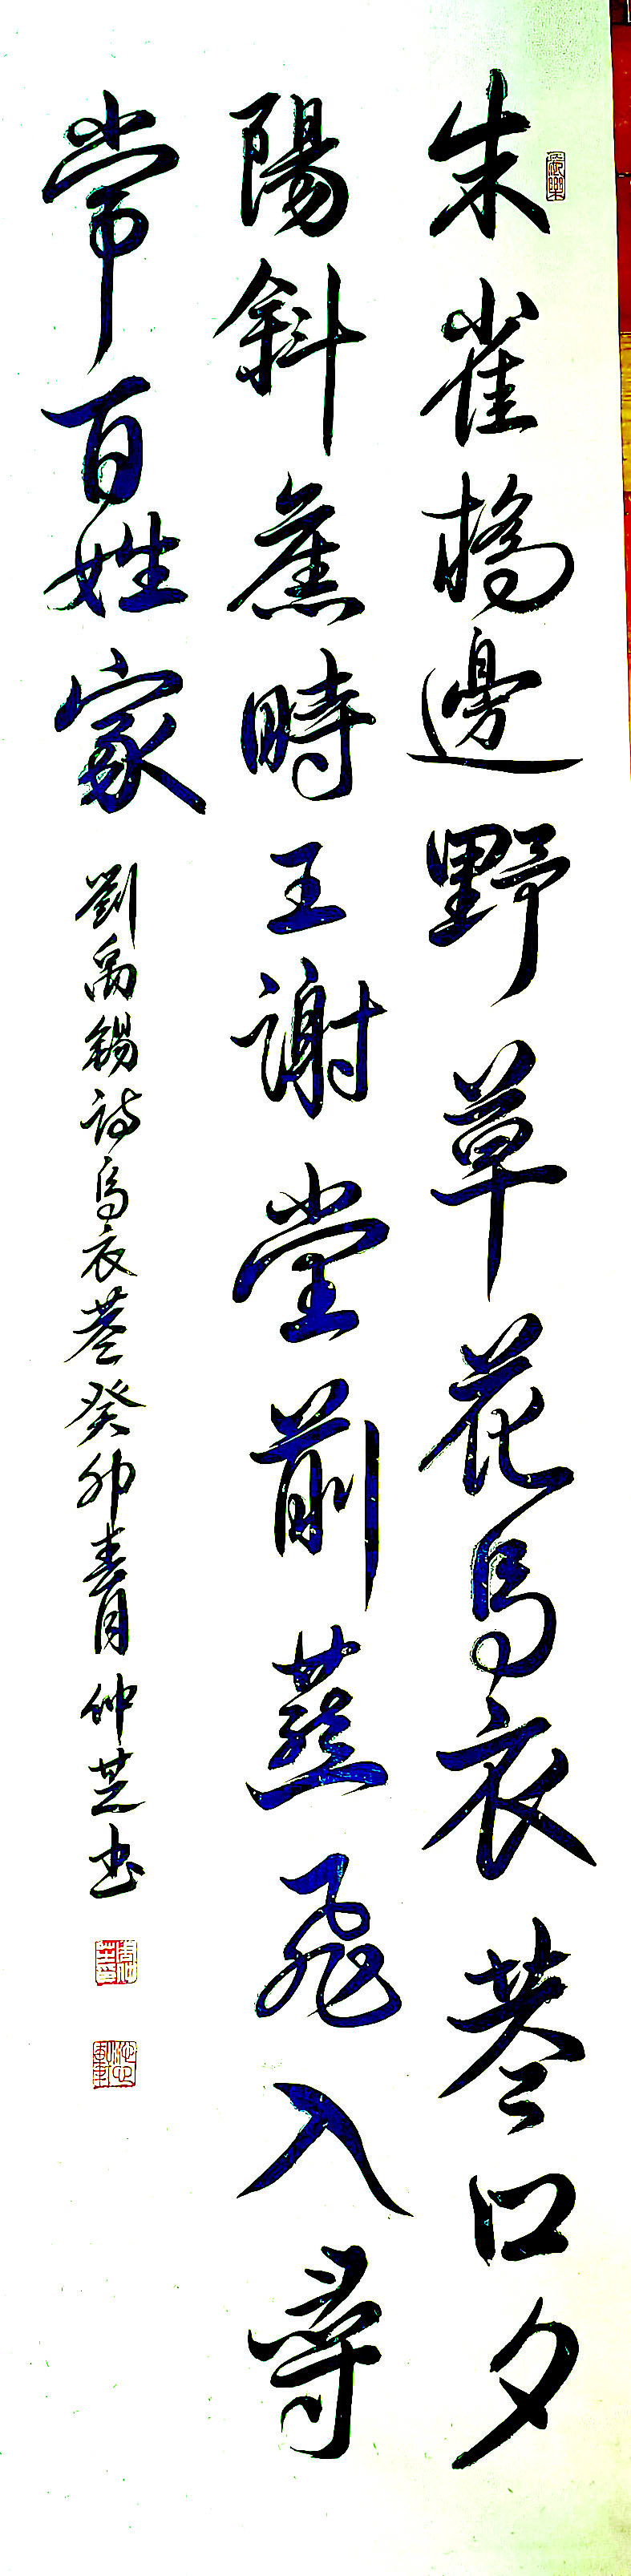 朱雀橋邊野草花烏衣巷口夕
陽斜舊時王謝堂前燕飛入尋
常百姓家
劉禹錫詩烏衣巷癸卯春月仲芝书